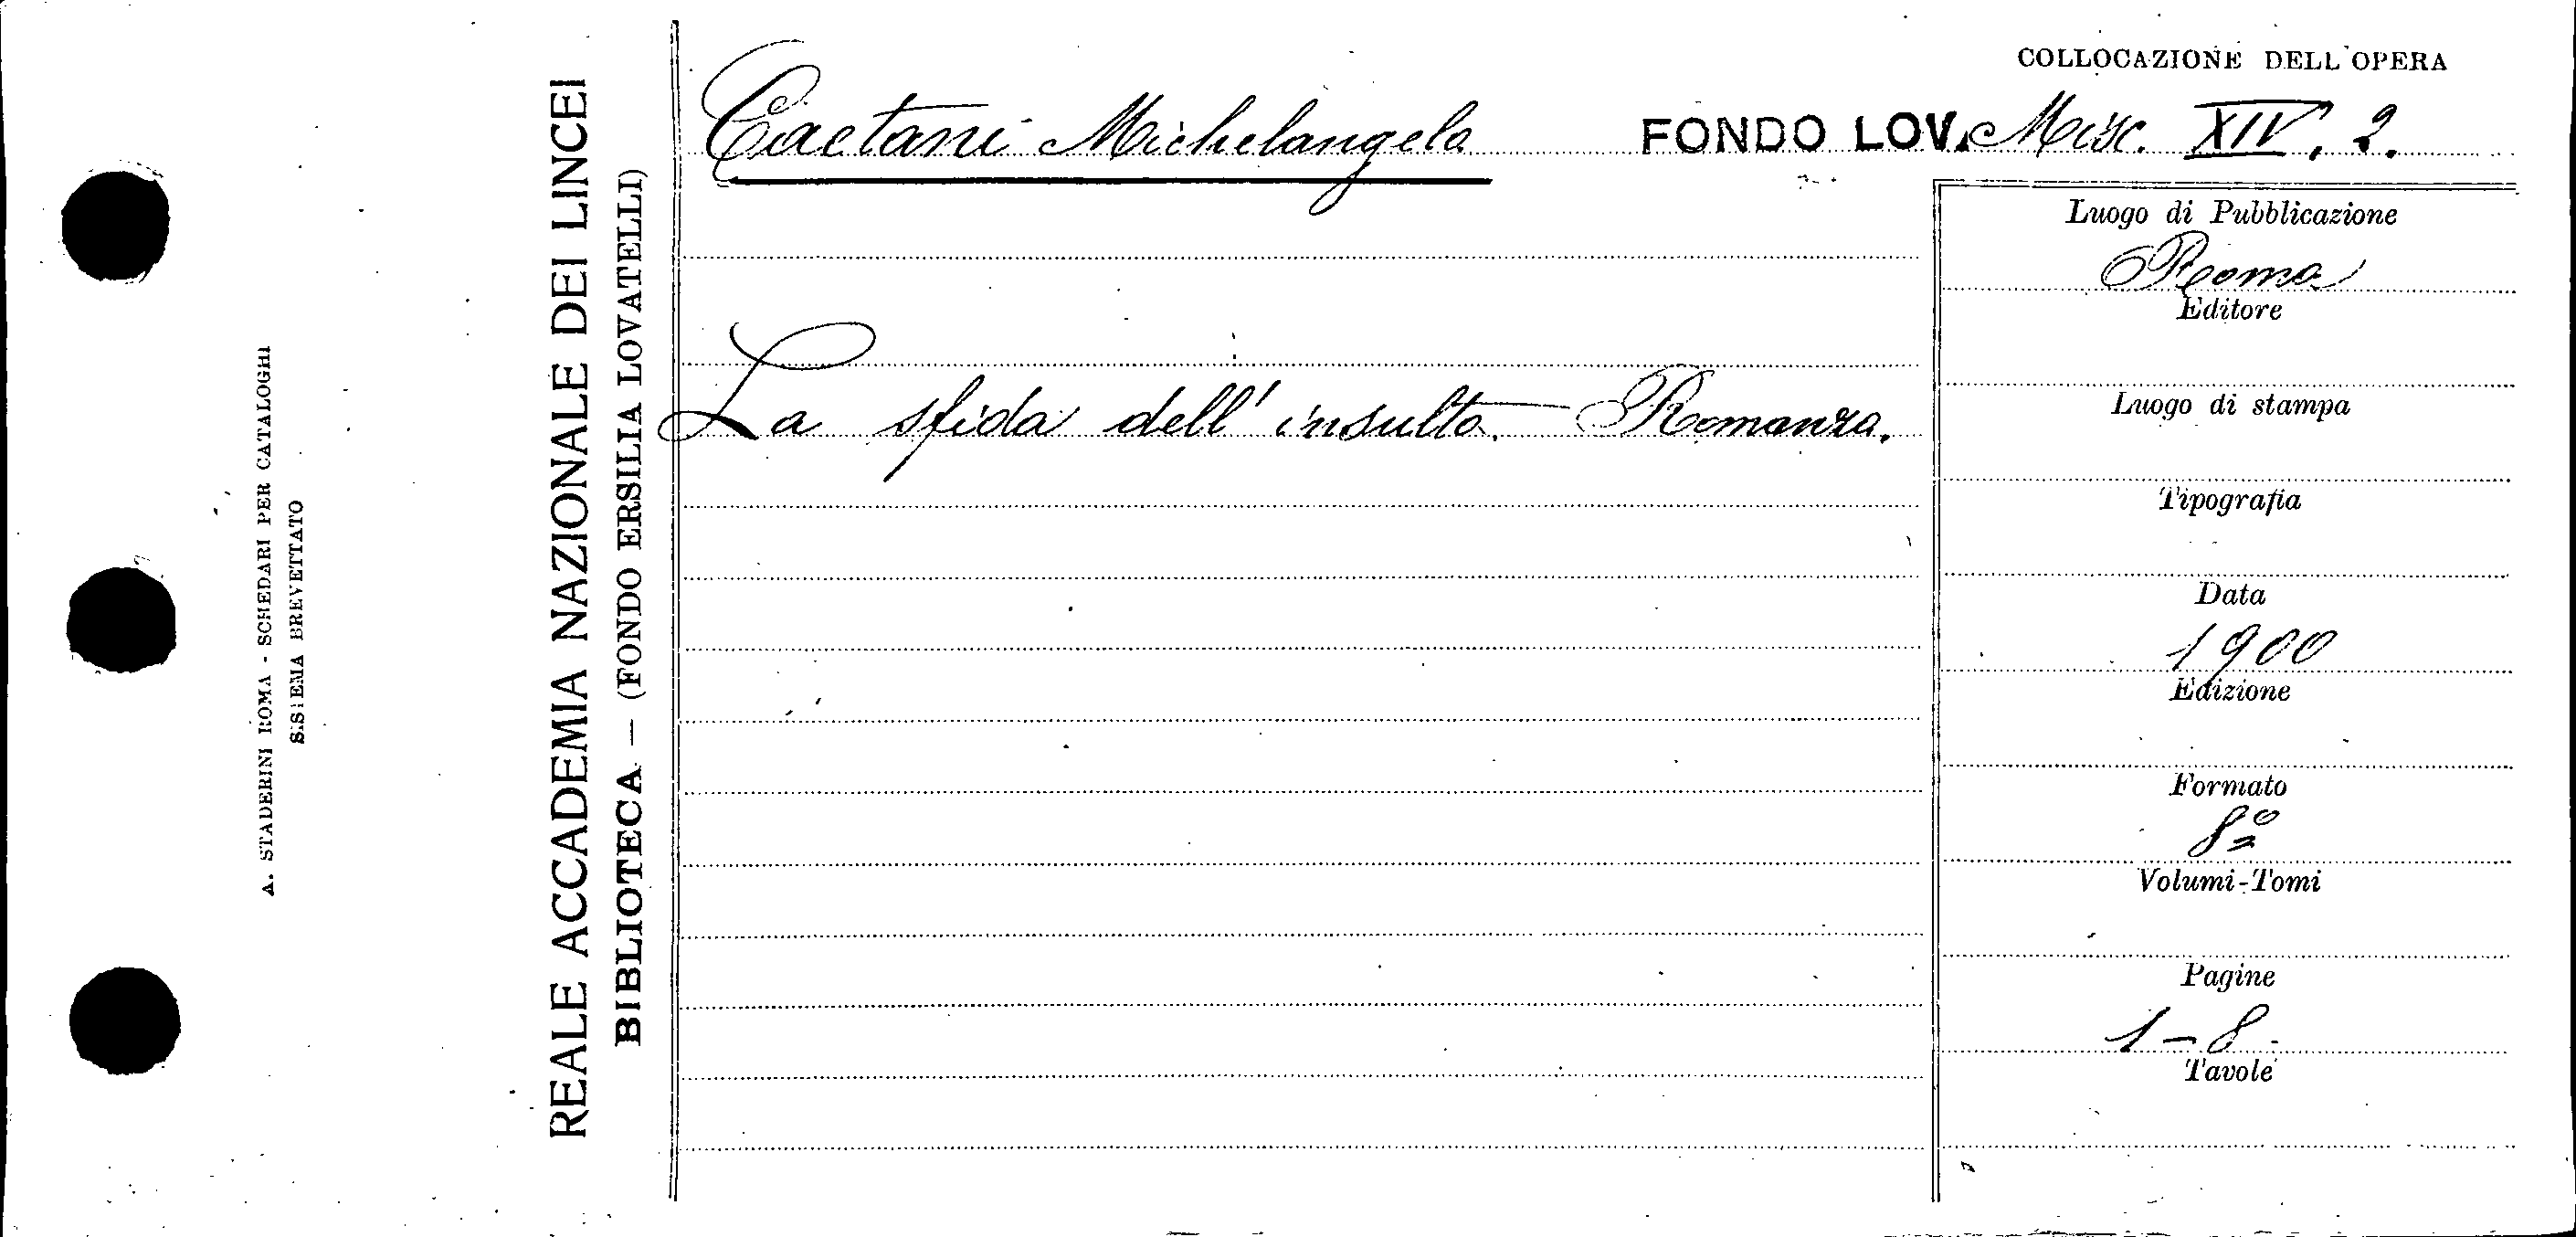 A. STADERINI ROMA - SCHEDARI PER CATALOGHI
SISTEMA BREVETTATO
REALE ACCADEMIA NAZIONALE DEI LINCEI
BIBLIOTECA — (FONDO ERSILIA LOVATELLI)
COLLOCAZIONE DELL'OPERA
Caetani Michelangelo FONDO LOV. Misc. XIV, 2.
La sfida dell'insulto. — Romanza.
Luogo di Pubblicazione
Roma
Editore
Luogo di stampa
Tipografia
Data
1900
Edizione
Formato
8º
Volumi-Tomi
Pagine
1-8.
Tavole